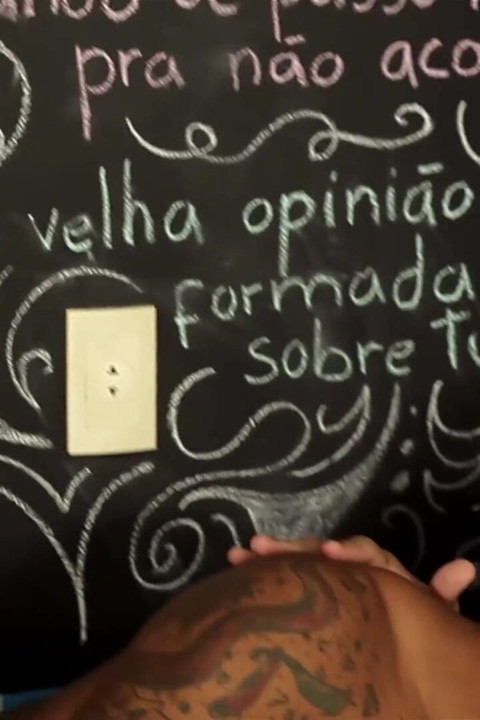 de passo
pra não aco
velha opinião
formada
sobre Tu